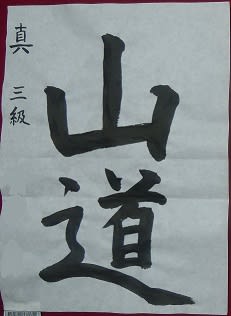 山道
真 三級